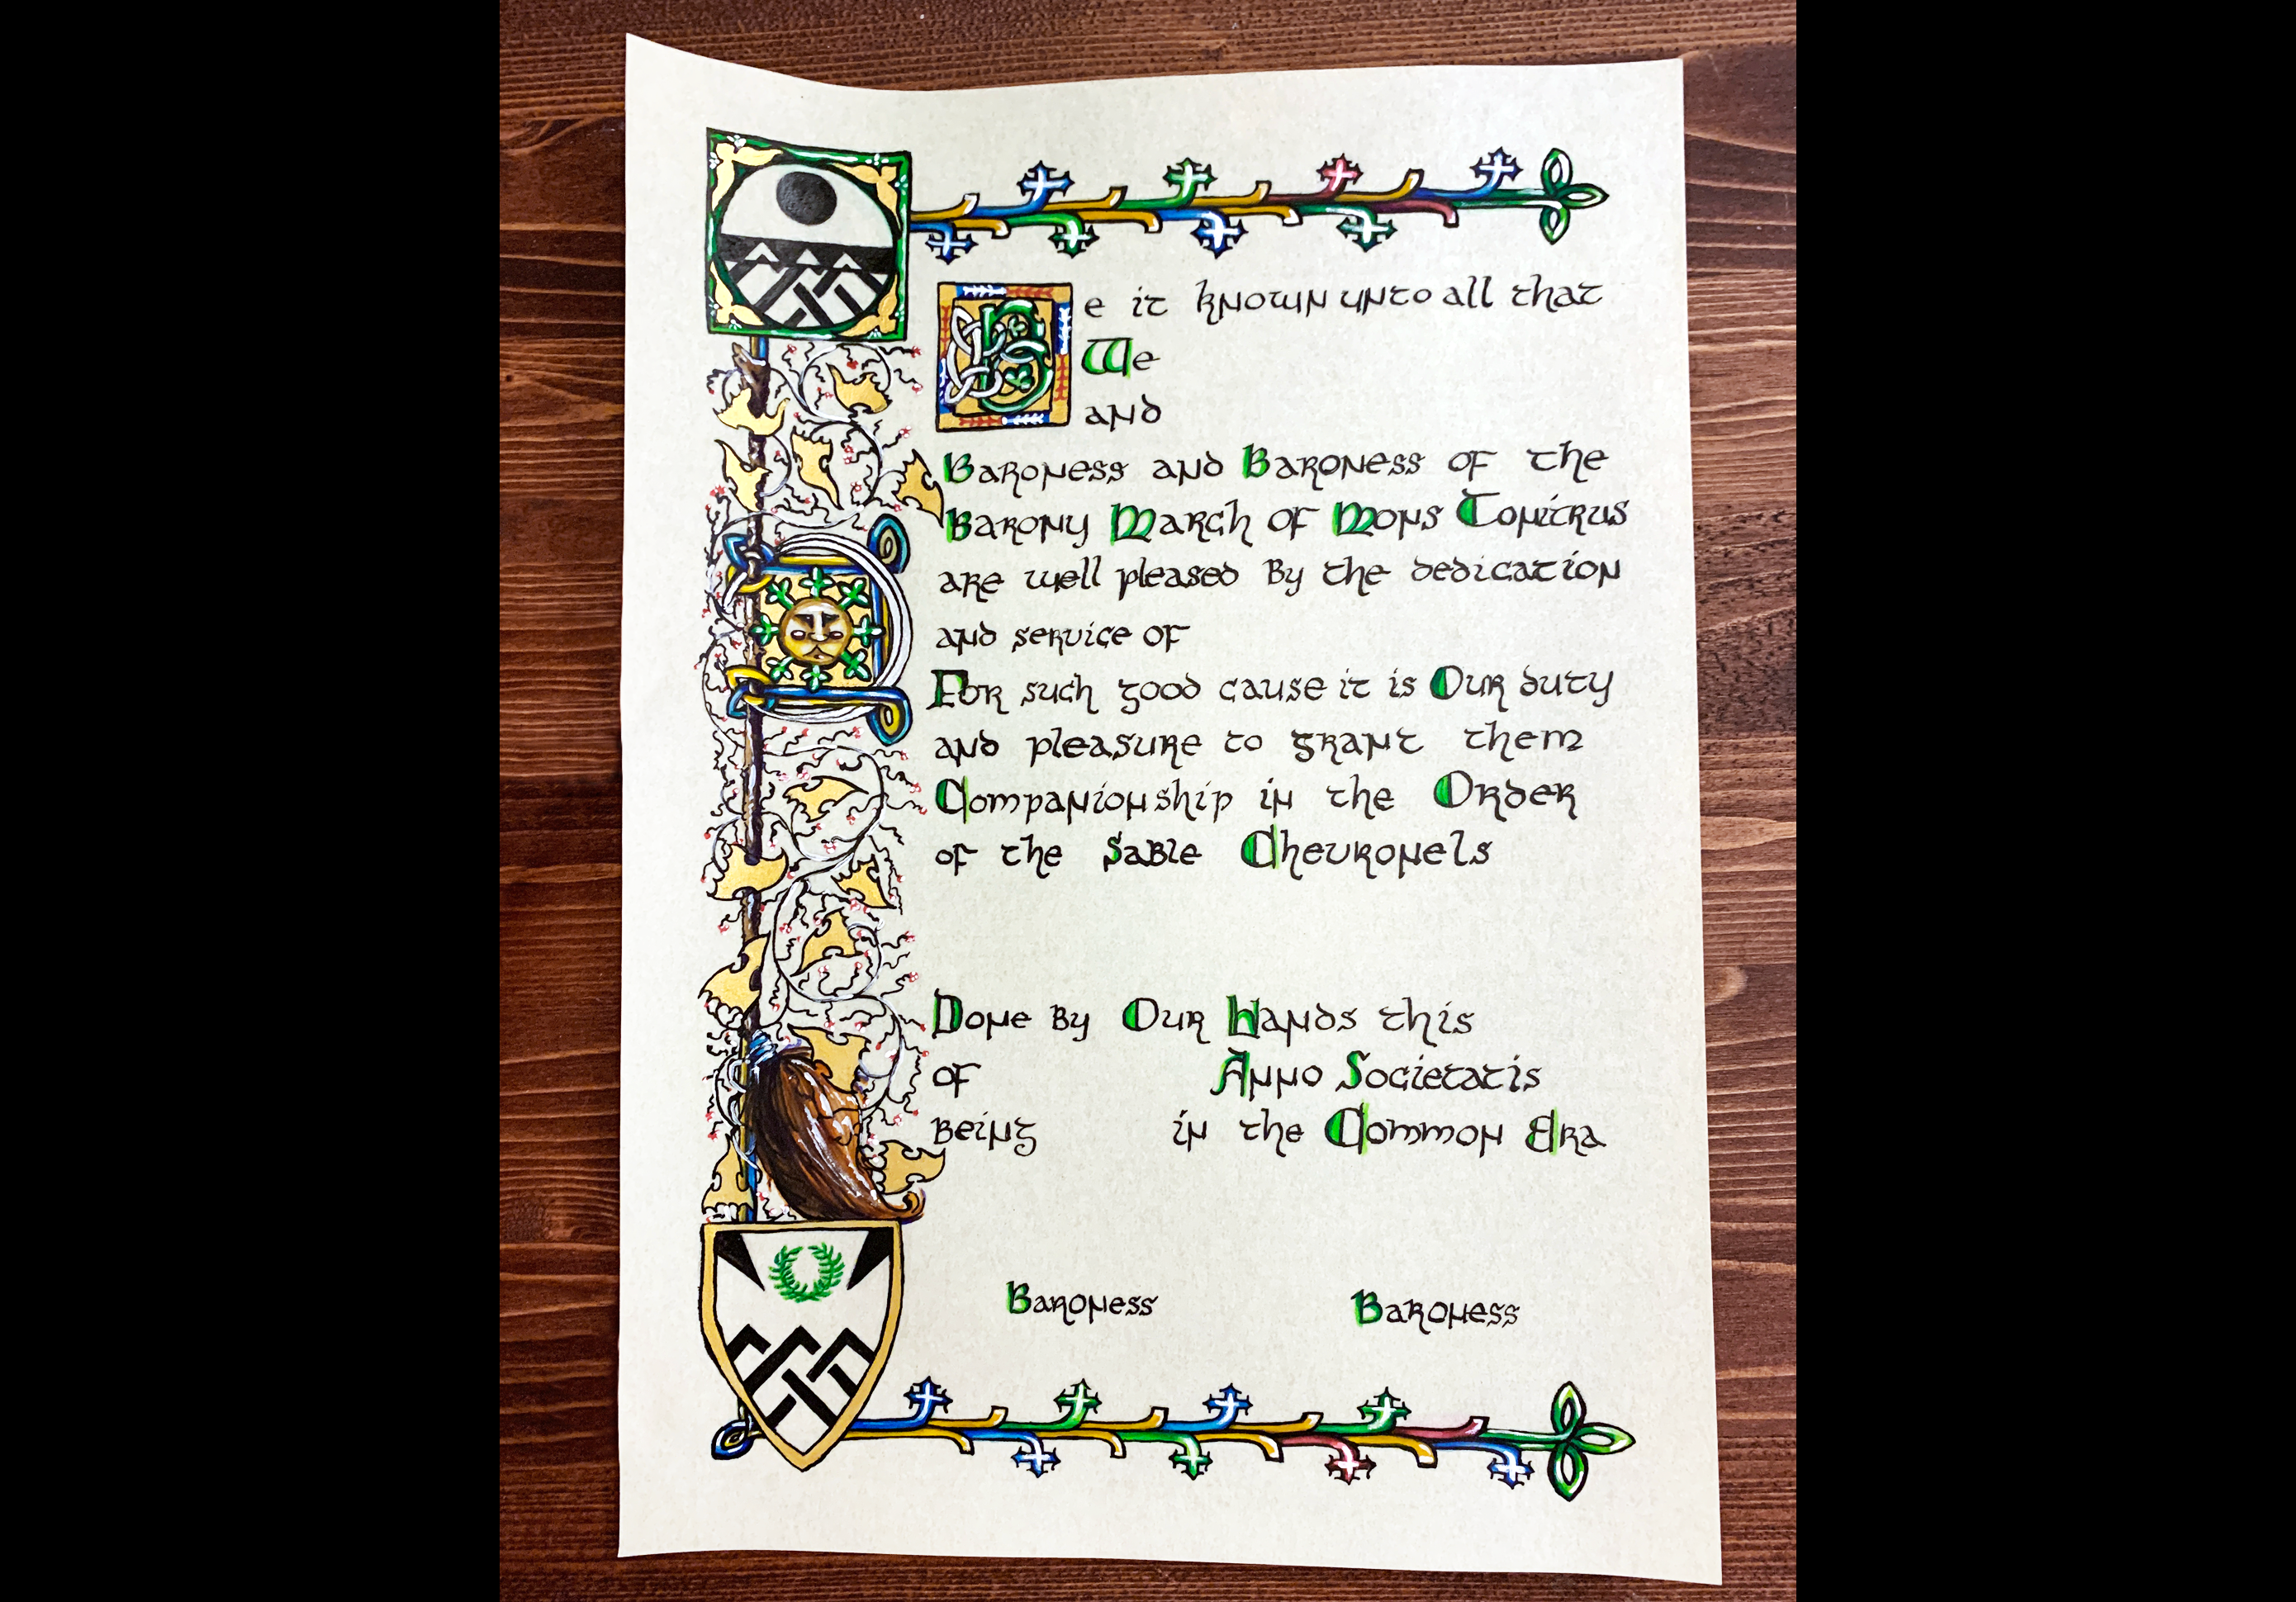 Be it known unto all that
We
and
Baroness and Baroness of the
Barony March of Mons Tonitrus
are well pleased By the dedication
and service of
For such good cause it is Our duty
and pleasure to grant them
Companionship in the Order
of the Sable Chevronels
Done By Our Hands this
of Anno Societatis
Being in the Common Era
Baroness Baroness